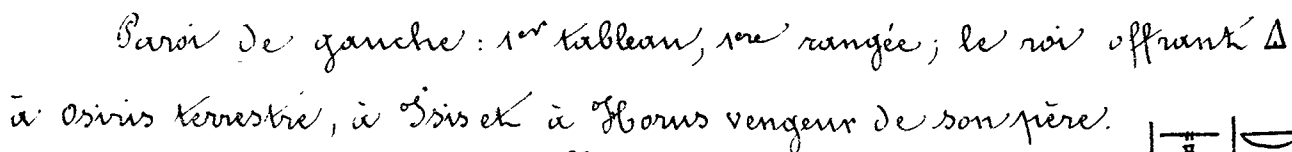 Paroi de gauche : 1er tableau, 1ere rangée ; le roi offrant Δ
à Osiris terrestre, à Isis et à Horus vengeur de son père.